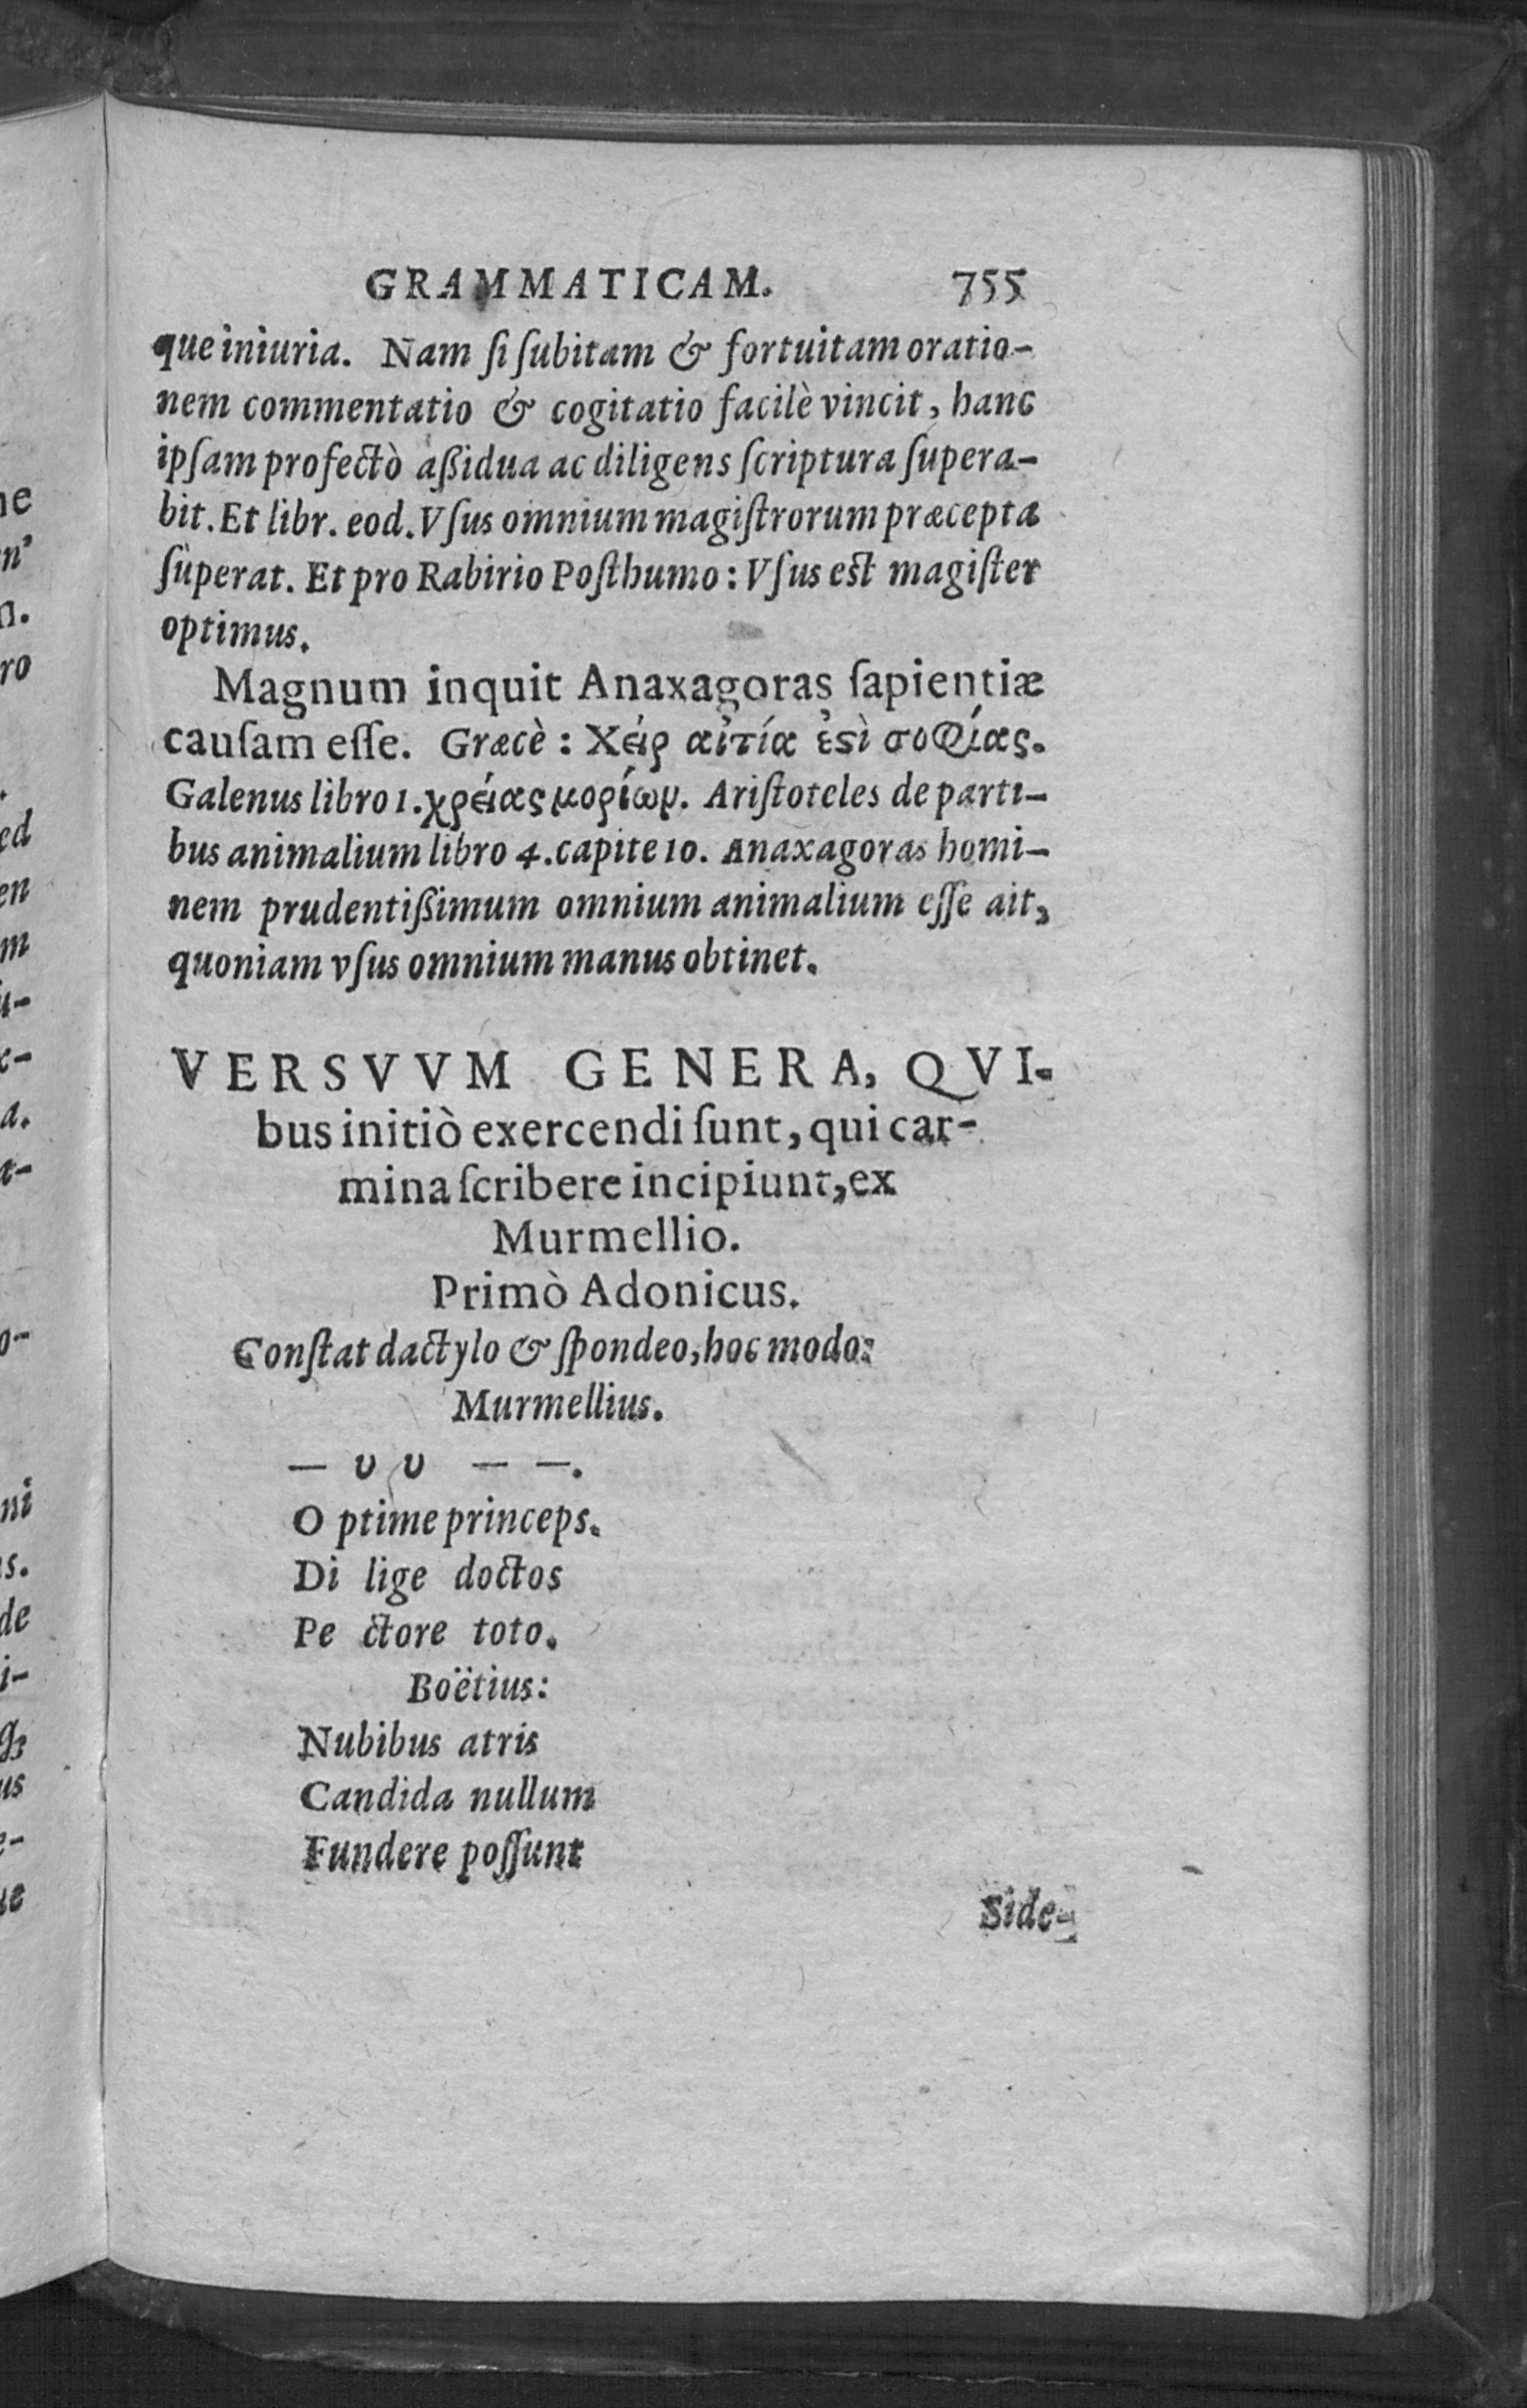 GRAMMATICAM. 755
que iniuria. Nam ſi ſubitam & fortuitam oratio-
nem commentatio & cogitatio facilè vincit, hanc
ipſam profectò aßidua ac diligens ſcriptura ſupera-
bit. Et libr. eod. Vſus omnium magiſtrorum præcepta
ſuperat. Et pro Rabirio Poſthumo: Vſus est magiſter
optimus.
Magnum inquit Anaxagoras ſapientiæ
cauſam eſſe. Græcè: Χείρ αἰτία ἐϛὶ σοφίας.
Galenus libro 1. χρείας μορίων. Ariſtoteles de parti-
bus animalium libro 4. capite 10. Anaxagoras homi-
nem prudentißimum omnium animalium eſſe ait,
quoniam vſus omnium manus obtinet.
VERSVVM GENERA, QVI-
bus initiò exercendi ſunt, qui car-
mina ſcribere incipiunt, ex
Murmellio.
Primò Adonicus.
Conſtat dactylo & ſpondeo, hoc modo:
Murmellius.
— υ υ — —.
O ptime princeps.
Di lige doctos
Pe ctore toto.
Boëtius:
Nubibus atris
Candida nullum
Fundere poſſunt
Side-